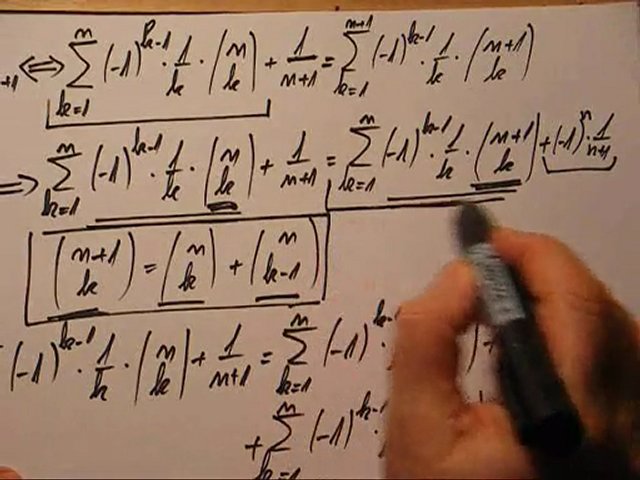 n+1 ⟺ ∑_{k=1}^{n} (-1)^{k-1} · 1/k · (n k) + 1/(n+1) = ∑_{k=1}^{n+1} (-1)^{k-1} · 1/k · (n+1 k)
⟹ ∑_{k=1}^{n} (-1)^{k-1} · 1/k · (n k) + 1/(n+1) = ∑_{k=1}^{n} (-1)^{k-1} · 1/k · (n+1 k) + (-1)^n · 1/(n+1)
(n+1 k) = (n k) + (n k-1)
(-1)^{k-1} · 1/k · (n k) + 1/(n+1) = ∑_{k=1}^{n} (-1)^{k-1} ·
+ ∑_{k=1}^{n} (-1)^{k-1} ·